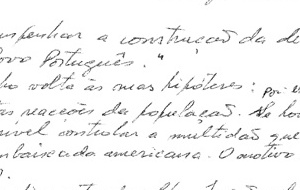 a construção da de
Português."
volta às mas hipóteses: Por e
reacções da população. Se ho
ível controlar a multidão que
mbaixada americana. O motivo